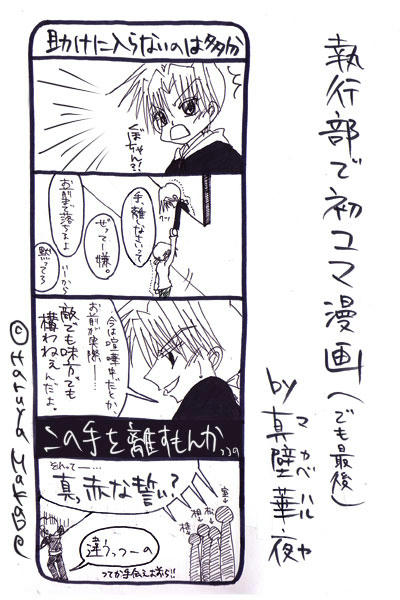 執行部で初コマ漫画(でも最後)
by 真壁華夜
マカベハルヤ
助けに入らないのは多分
くぼちゃん?!
手、離しなさいって
ぜってー嫌。
お前まで落ちるよ
いーから
黙ってろ
今は喧嘩中だとか
お前が実際―…
敵でも味方でも
構わねぇんだよ。
この手を離すもんかっつの
それって―…
真っ赤な誓い?
室
松
相
桂
違うっつーの
つてか手伝えお前ら!!
© Haruya Makabe